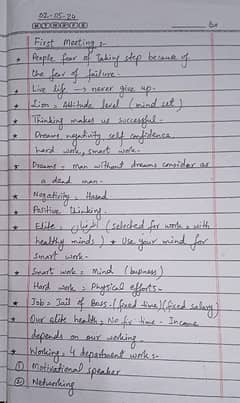 02-05-24
First Meeting :-
* People fear of taking step because of
the fear of failure.
* Live life → never give up.
* Lion = Attitude level (mind set)
* Thinking makes us successful.
* Dreams negativity self confidence
hard work, smart work.
* Dreams = Man without dreams consider as
a dead man.
* Negativity =
* Positive thinking.
* Elite = (selected for work with
healthy minds) * Use your mind for
smart work.
* Smart work = Mind (business)
Hard work = Physical efforts.
* Job = Jail of Boss. (fixed time) (fixed salary)
* Our elite health: No fix time - Income
depends on our working.
* Working = 4 department works:-
① Motivational speaker
② Networking